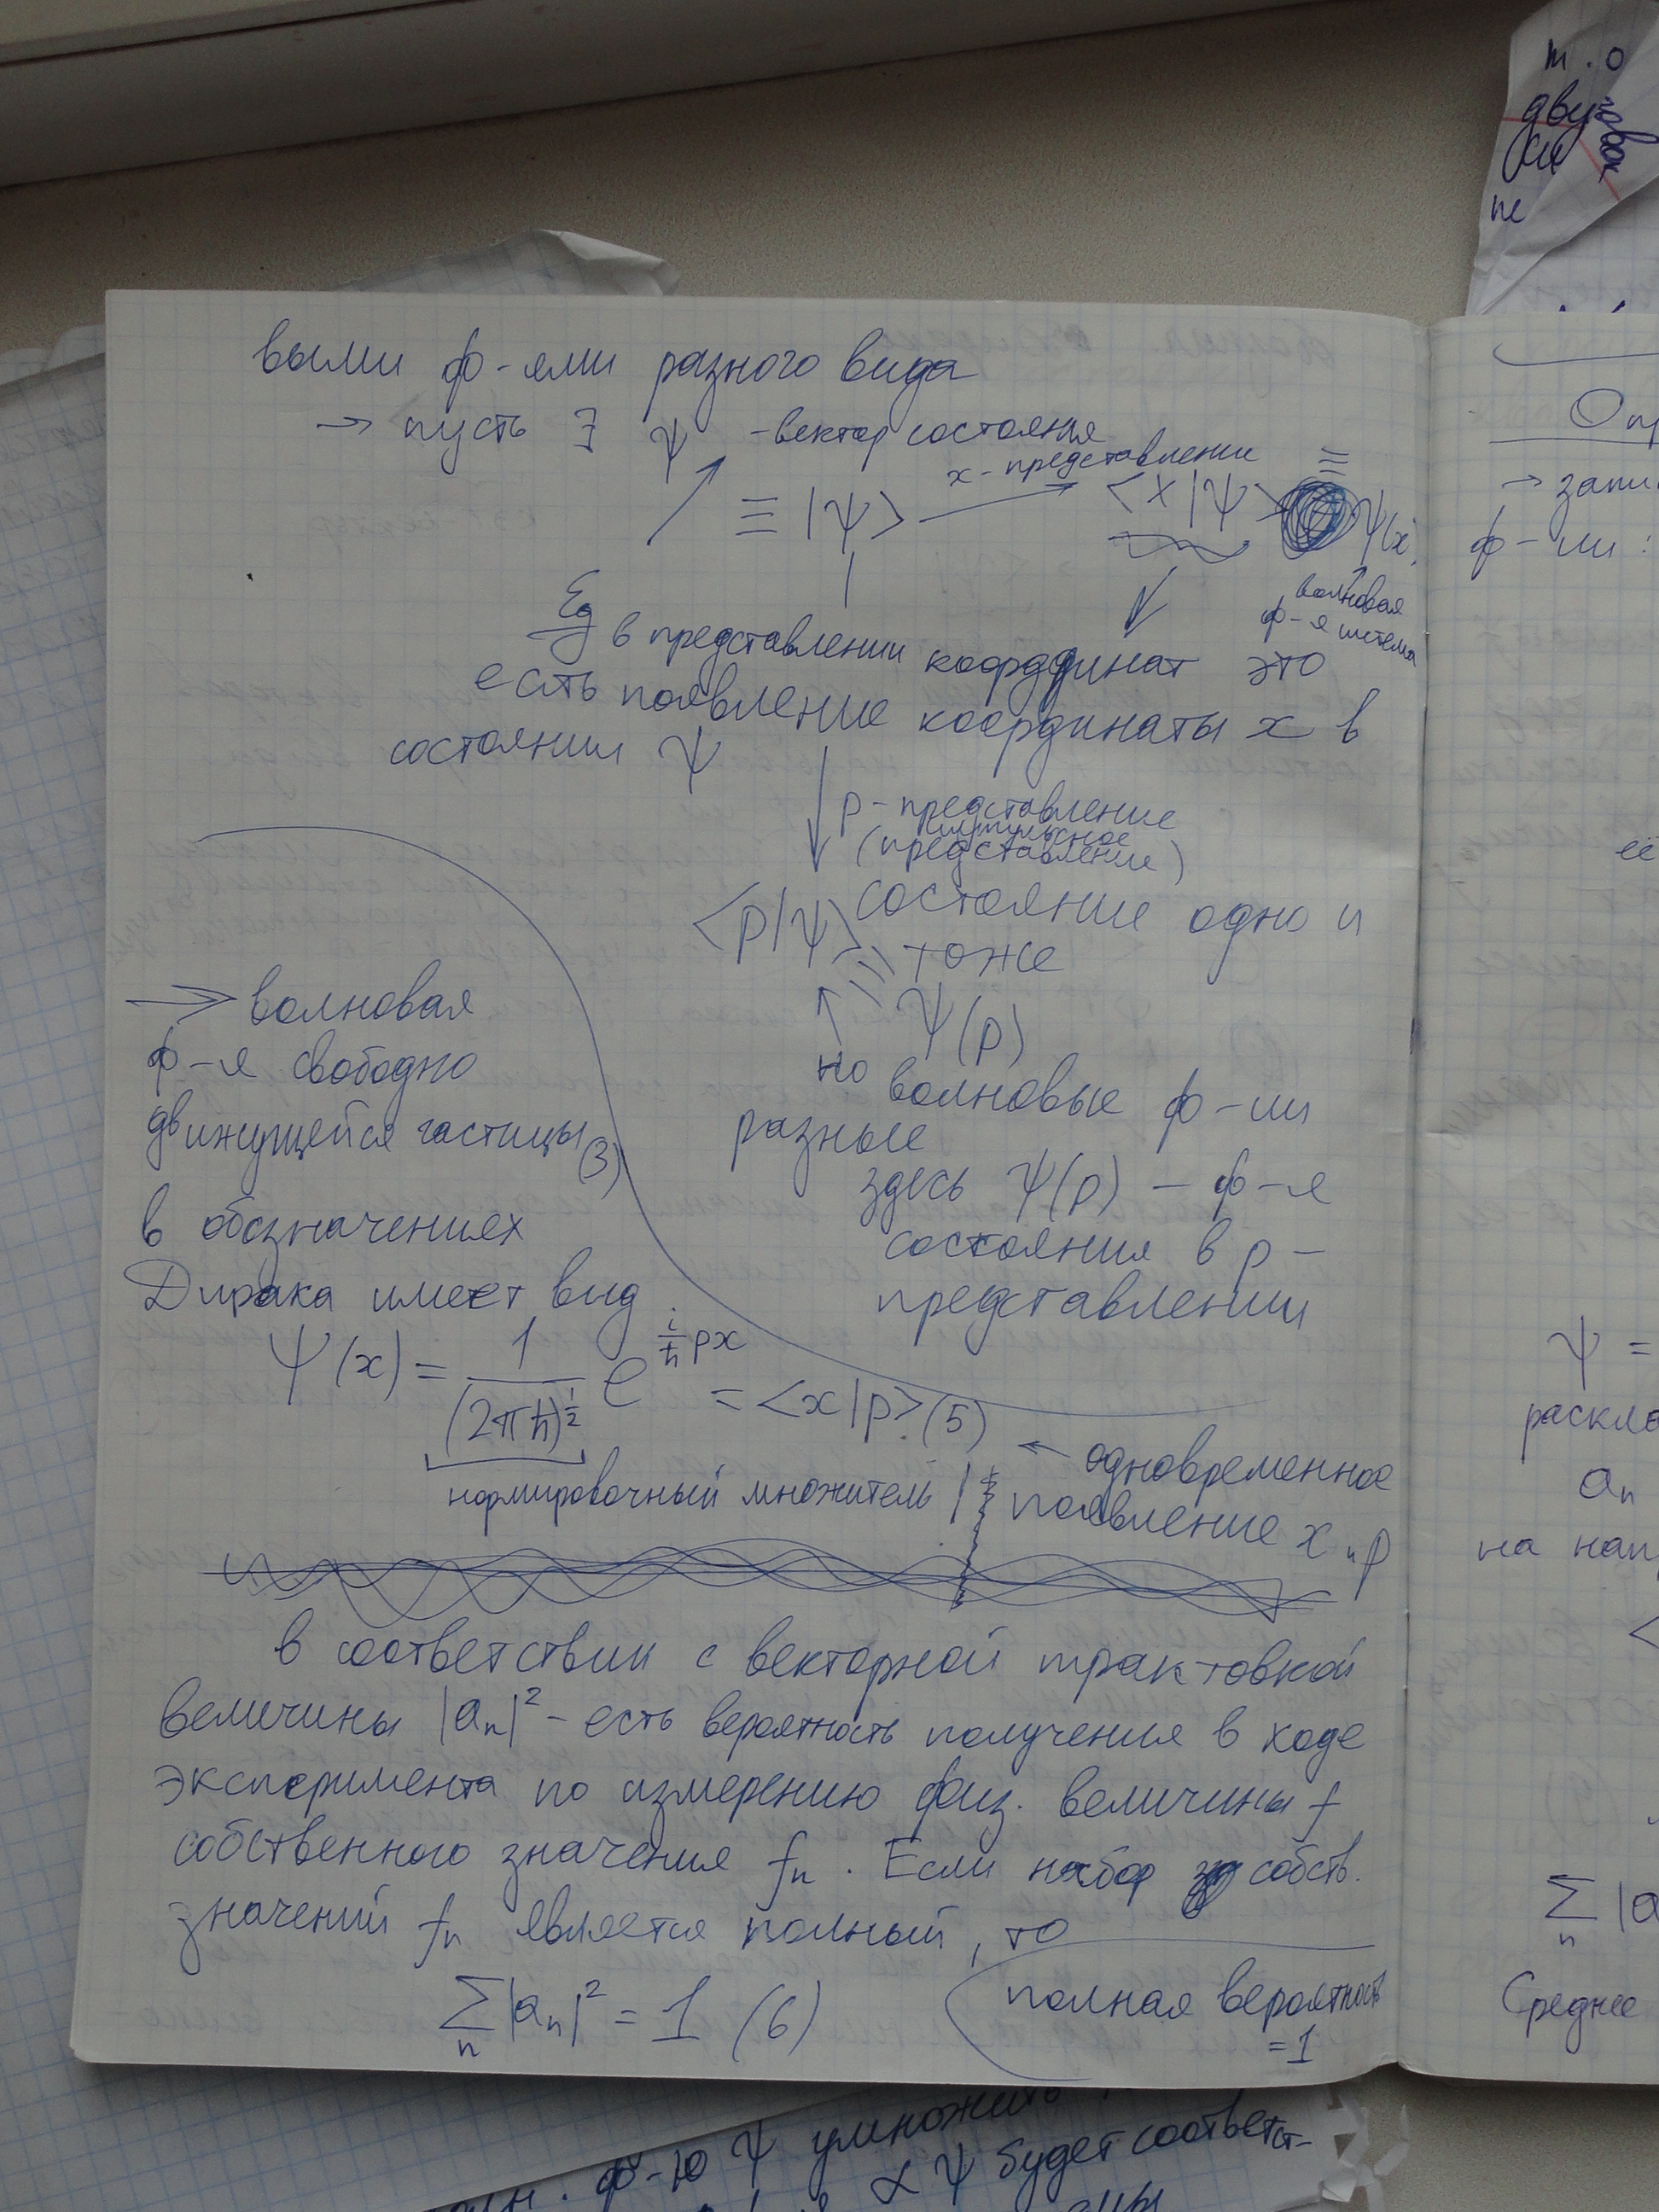 выми ф-ями разного вида
→ пусть ∃ Ψ - вектор состояния
≡ |Ψ> → x-представление <x|Ψ> ≡ Ψ(x)
волновая
ф-я
в представлении координат это
есть появление координаты x в
состоянии Ψ
p-представление
(импульсное
представление)
<p|Ψ> состояние одно и
тоже
= Ψ(p)
но волновые ф-ии
разные
здесь Ψ(p) - ф-я
состояния в p-
представлении
→ волновая
ф-я свободно
движущейся частицы (3)
в обозначениях
Дирака имеет вид
Ψ(x) = 1/(2πħ)^½ e^(i/ħ px) = <x|p>. (5)
нормировочный множитель
← одновременное
появление x и p
в соответствии с векторной трактовкой
величины |aₙ|² - есть вероятность получения в ходе
эксперимента по измерению физ. величины f
собственного значения fₙ. Если набор собств.
значений fₙ является полный, то
∑ₙ |aₙ|² = 1 (6)
полная вероятность
= 1
т.о
дву
не
Опр
→ запи
ф-ии:
её
Ψ =
раскла
aₙ
на нап
<
∑ₙ |a
Среднее
ф-ю Ψ умножить
α Ψ будет соответст-